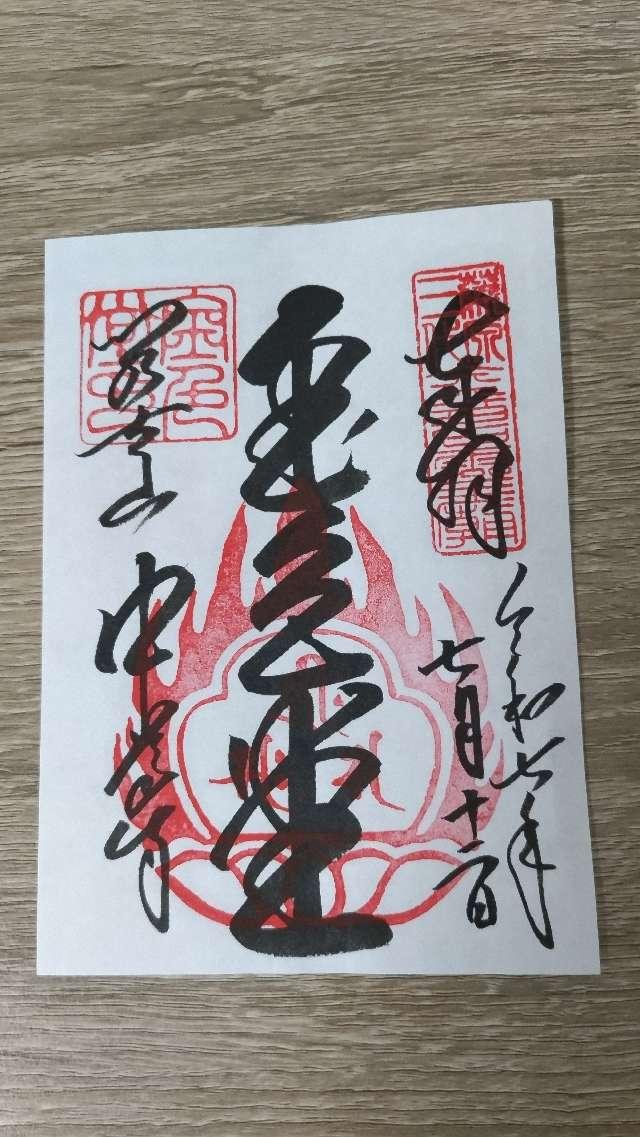 奉拝
令和七年
七月十二日
金色堂
関山
中尊寺